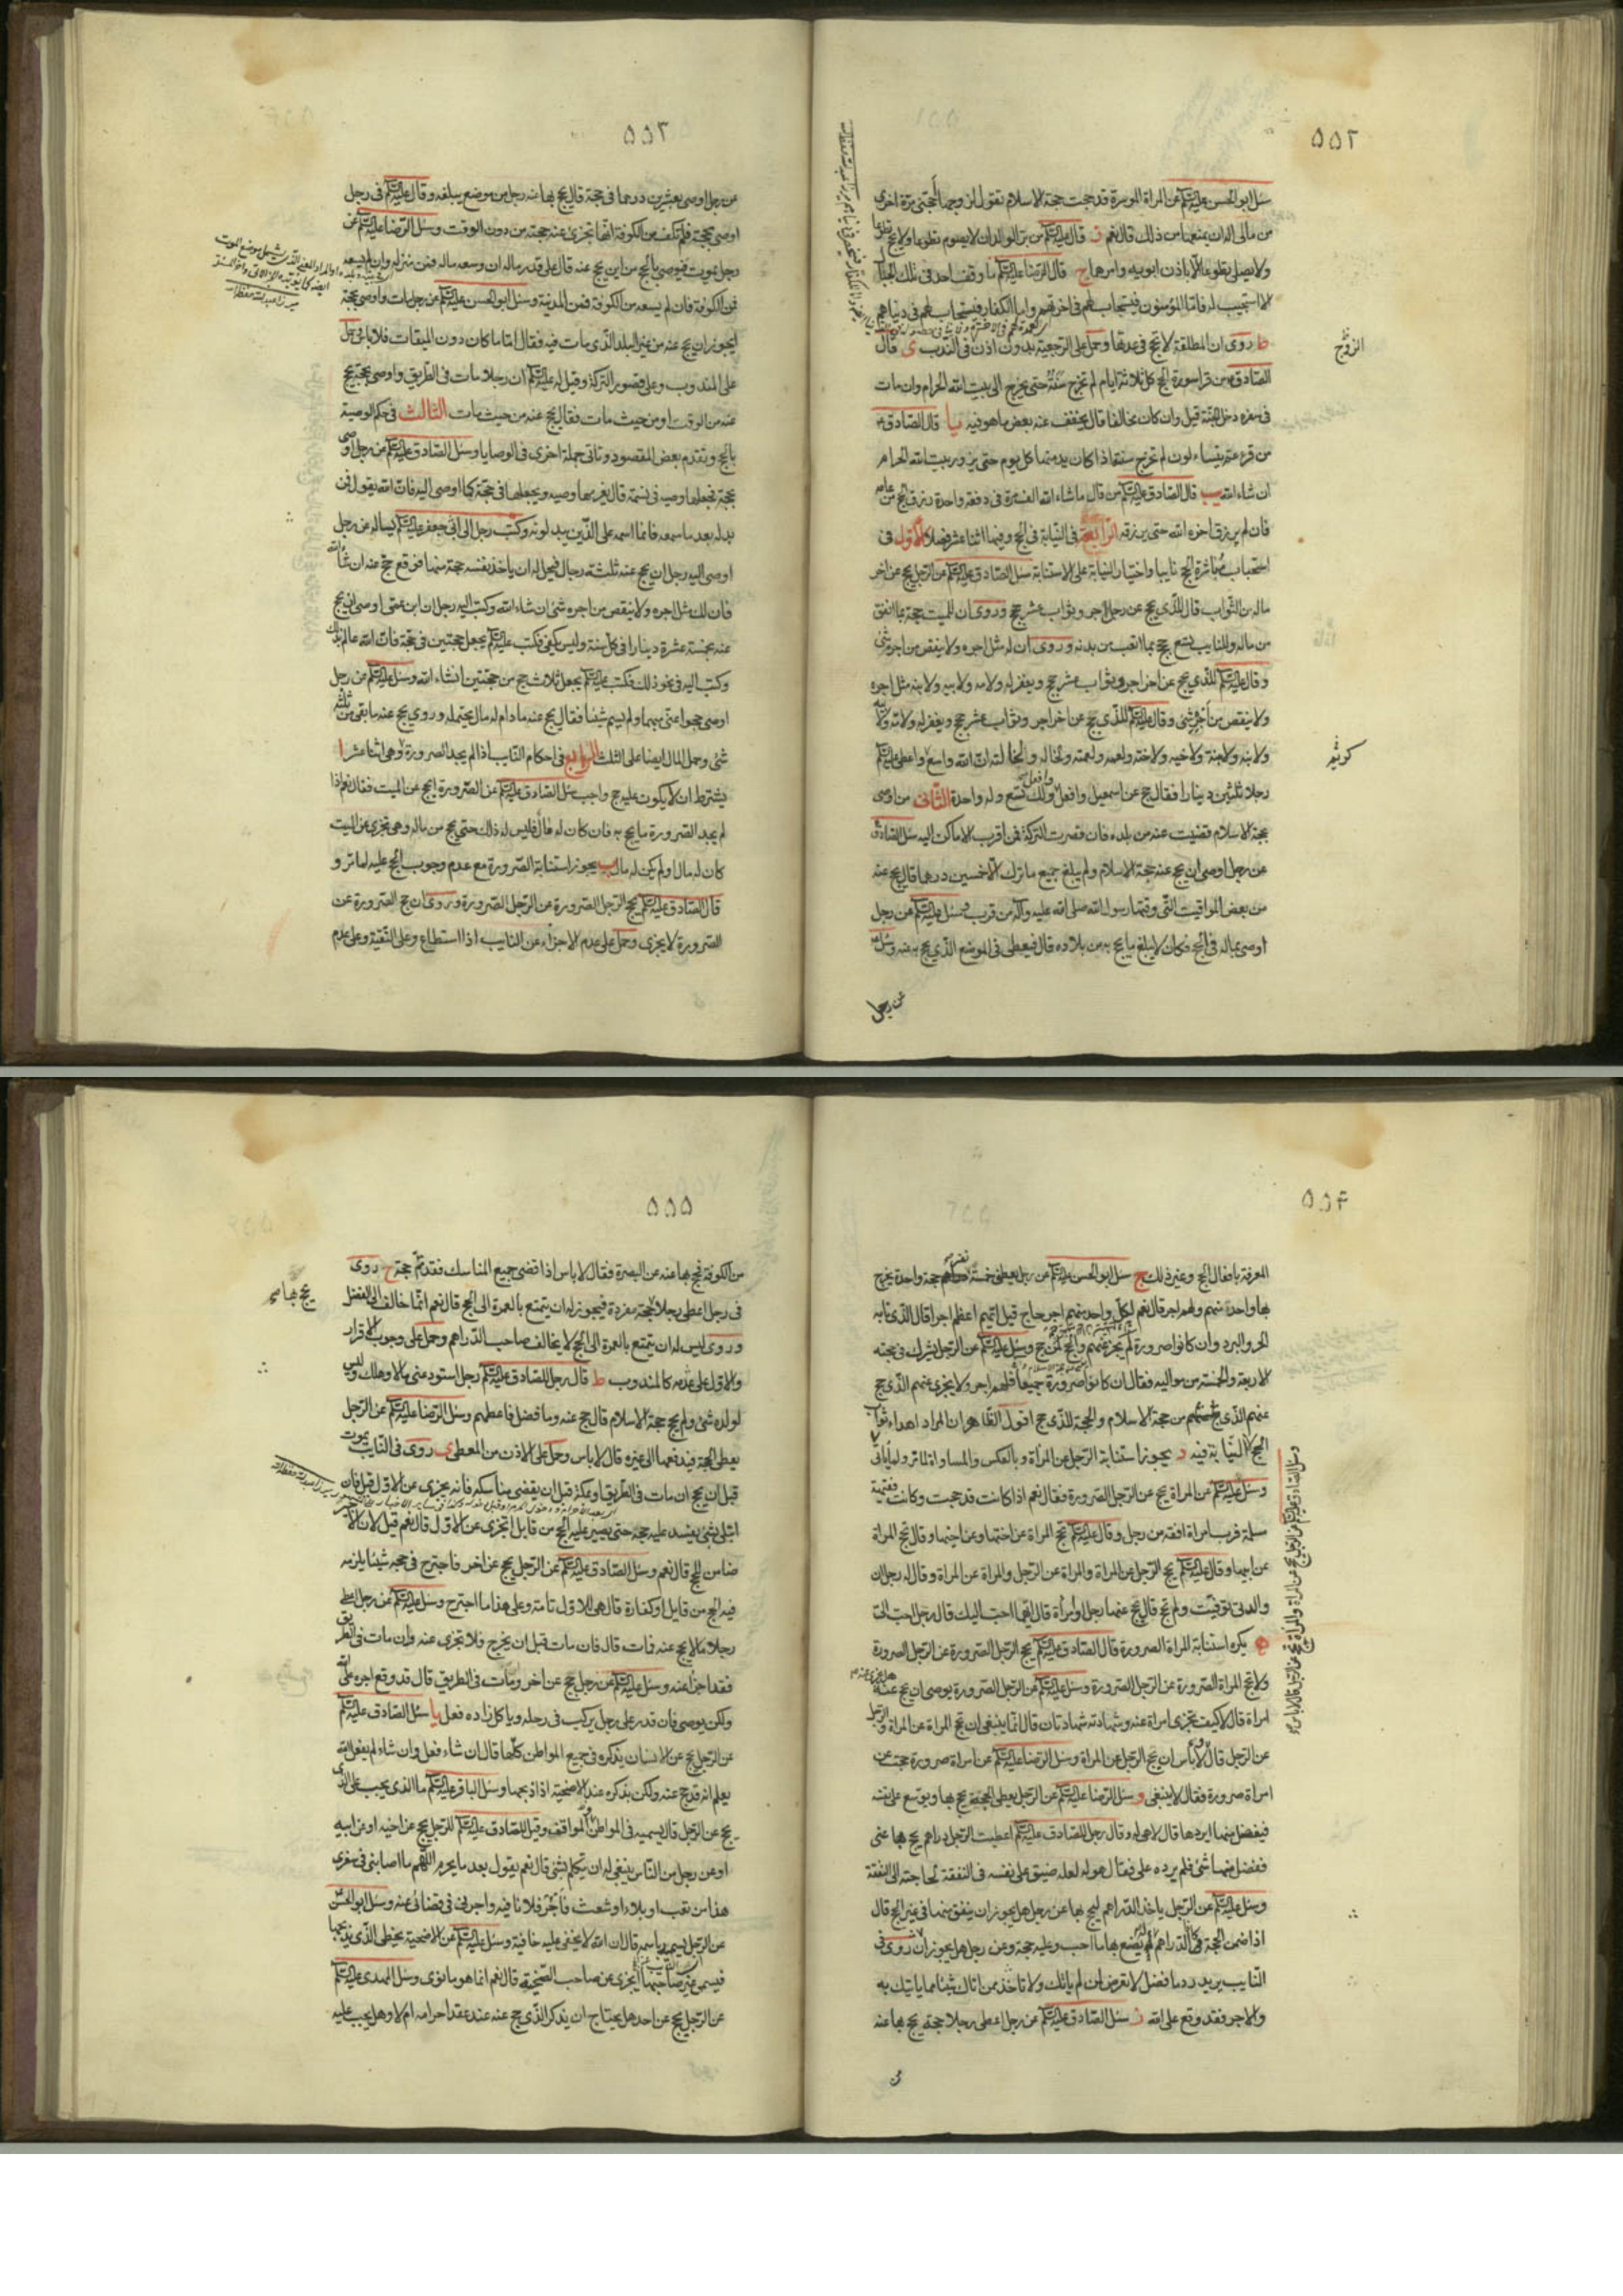 ٥٥٢
سئل ابو الحسن عليه السلام عن المراة الموسرة قد حجت حجة الاسلام تقول لزوجها احجنى مرة اخرى
من مالى اله ان يمنعها من ذلك قال نعم ز قال عليه السلام من بر الوالدان لا يصوم تطوعا ولا يحج تطوعا
ولا يصلى تطوعا الا باذن ابويه وامرهما ح قال الرضا عليه السلام ما وقف احد فى تلك الجبال
الا استجيب له فاما المؤمنون فيستجاب لهم فى اخرتهم واما الكفار فيستجاب لهم فى دنياهم
ط روى ان المطلقة لا تحج فى عدتها وحمل على الرجعية بدون اذن فى الندب ى قال
الزوج
الصادق من قرا سورة الحج كل ثلاثة ايام لم تخرج سنته حتى يخرج الى بيت الله الحرام وان مات
فى سفره دخل الجنة قيل وان كان مخالفا قال يخفف عنه بعض ما هو فيه يا قال الصادق
من قرء عم يتساءلون لم تخرج سنته اذا كان يدمنها كل يوم حتى يزور بيت الله الحرام
ان شاء الله يب قال الصادق عليه السلام من قال ما شاء الله الف مرة فى دفعة واحدة رزق الحج من عامه
فان لم يرزق اخره الله حتى يرزقه الرابعة فى النيابة فى الحج وفيها اثنا عشر فصلا الاول فى
استحباب مباشرة الحج نايبا واختيار النيابة على الاستنابة سئل الصادق عليه السلام عن الرجل يحج عن اخر
ماله من الثواب قال للذى يحج عن رجل اجر وثواب عشر حجج وروى ان للميت حجة بما انفق
من ماله وللنايب تسع حجج بما اتعب من بدنه وروى ان له مثل اجره ولا ينقص من اجره شئ
وقال عليه السلام للذى يحج عن اخر اجر وثواب عشر حجج ويغفر له ولامه ولابيه ولابنه مثل اجره
ولا ينقص من اجره شئ وقال عليه السلام للذى يحج عن اخر اجر وثواب عشر حجج ويغفر له ولابيه ولامه
ولابنه ولابنة ولاخيه ولاخته ولعمه ولعمته ولخاله ولخالته ان الله واسع كريم واعطى عليه السلام
رجلا ثلثين دينارا فقال حج عن اسمعيل وافعل وافعل ولك تسع وله واحدة الثانى من اوصى
بحجة الاسلام قضيت عنه من بلده فان قصرت التركة فمن اقرب الاماكن اليه سئل الصادق
عن رجل اوصى ان يحج عنه حجة الاسلام ولم يبلغ جميع ما ترك الا خمسين درهما قال يحج عنه
من بعض المواقيت التى وقتها رسول الله صلى الله عليه وآله من قرب وسئل عليه السلام عن رجل
اوصى بماله فى الحج فكان لا يبلغ ما يحج به من بلاده قال فيعطى فى الموضع الذى يحج به عنه وسئل
عن رجل
٥٥٣
عن رجل اوصى بعشرين درهما فى حجة قال يحج بها عنه رجل من موضع يبلغه وقال عليه السلام فى رجل
اوصى بحجة فلم تكف من الكوفة انها تجزى عنه حجته من دون الوقت وسئل الرضا عليه السلام عن
رجل يموت فيوصى بالحج من اين يحج عنه قال على قدر ماله ان وسعه ماله فمن منزله وان لم يسعه
فمن الكوفة فان لم يسعه من الكوفة فمن المدينة وسئل ابو الحسن عليه السلام عن رجل مات واوصى بحجة
ايجوز ان يحج عنه من غير البلد الذى مات فيه فقال اما ما كان دون الميقات فلا باس وحمل
على المندوب وعلى قصور التركة وقيل له عليه السلام ان رجلا مات فى الطريق واوصى بحجة يحج
عنه من الوقت او من حيث مات فقال يحج عنه من حيث مات الثالث فى حكم الوصية
بالحج وتقدم بعض المقصود وتاتى جملة اخرى فى الوصايا وسئل الصادق عليه السلام عن رجل اوصى
بحجة فجعلها وصيه فى نسمة قال يغرمها وصيه ويجعلها فى حجة كما اوصى اليه فان الله يقول فمن
بدله بعد ما سمعه فانما اثمه على الذين يبدلونه وكتب رجل الى ابى جعفر عليه السلام يساله عن رجل
اوصى اليه رجل ان يحج عنه ثلثة رجال فيحل له ان ياخذ لنفسه حجة منها فوقع حج عنه ان شاء الله
فان لك مثل اجره ولا ينقص من اجره شئ ان شاء الله وكتب اليه رجل ان ابن عمى اوصى ان يحج
عنه بخمسة عشرة دينارا فى كل سنة وليس يكفى فكتب عليه السلام يجعل حجتين فى حجة فان الله عالم بذلك
وكتب اليه فى نحو ذلك فكتب عليه السلام يجعل ثلاث حجج من حجتين انشاء الله وسئل عليه السلام عن رجل
اوصى حجوا عنى مبهما ولم يسم شيئا فقال يحج عنه ما دام له مال يحتمله وروى يحج عنه ما بقى من ثلثه
شئ وحمل المال ايضا على الثلث الرابع فى احكام النايب اذا لم يجد الصرورة وهى اثنا عشر ا
يشترط ان لا يكون عليه حج واجب سئل الصادق عليه السلام عن الصرورة ايحج عن الميت فقال نعم اذا
لم يجد الصرورة ما يحج به فان كان له مال فليس له ذلك حتى يحج من ماله وهى تجزى عن الميت
كان له مال او لم يكن له مال ب يجوز استنابة الصرورة مع عدم وجوب الحج عليه لما مر و
قال الصادق عليه السلام يحج الرجل الصرورة عن الرجل الصرورة وروى ان حج الصرورة عن
الصرورة لا يجزى وحمل على عدم الاجزاء عن النايب اذا استطاع وعلى التقية وعلى عدم
٥٥٤
المعرفة بافعال الحج وغير ذلك ج سئل ابو الحسن عليه السلام عن رجل يعطى خمسة نفر حجة واحدة يخرج
بها واحد منهم ولهم اجر قال نعم لكل واحد منهم اجر حاج قيل ايهم اعظم اجرا قال الذى نابه
الحر والبرد وان كانوا صرورة لم يجز عنهم والحج لمن حج وسئل عليه السلام عن الرجل يشرك فى حجته
الاربعة والخمسة من مواليه فقال ان كانوا صرورة جميعا فلهم اجر ولا يجزى عنهم الذى حج
عنهم من حجة الاسلام والحجة للذى حج اقول الظاهر ان المراد اهداء ثواب
الحج لا النيابة فيه د يجوز استنابة الرجل عن المراة وبالعكس والمساواة لما مر ولما ياتى
وسئل عليه السلام عن المراة يحج عن الرجل الصرورة فقال نعم اذا كانت قد حجت وكانت فقيهة
مسلمة فرب امراة افقه من رجل وقال عليه السلام تحج المراة عن اختها وعن اخيها وقال تحج المراة
عن ابيها وقال عليه السلام يحج الرجل عن المراة والمراة عن الرجل والمراة عن المراة وقال له رجل ان
والدتى توفيت ولم تحج قال يحج عنها رجل وامراة قال ايهما احب اليك قال رجل احب الى
ه يكره استنابة المراة الصرورة قال الصادق عليه السلام يحج الرجل الصرورة عن الرجل الصرورة
ولا تحج المراة الصرورة عن الرجل الصرورة وسئل عليه السلام عن الرجل الصرورة يوصى ان يحج عنه
امراة قال لا كيف تجزى امراة عنه وشهادته شهادتان قال انما ينبغى ان تحج المراة عن المراة والرجل
عن الرجل قال ولا باس ان يحج الرجل عن المراة وسئل الرضا عليه السلام عن امراة صرورة حجت عن
امراة صرورة فقال لا ينبغى و سئل الرضا عليه السلام عن الرجل يعطى الحجة يحج بها ويوسع على نفسه
فيفضل منها ايردها قال لا هى له وقال رجل للصادق عليه السلام اعطيت الرجل دراهم يحج بها عنى
ففضل منها شئ فلم يرده على فقال هو له لعله ضيق على نفسه فى النفقة لحاجته الى النفقة
وسئل عليه السلام عن الرجل ياخذ الدراهم ليحج بها عن رجل هل يجوز ان ينفق منها فى غير الحج قال
اذا ضمن الحجة فالدراهم له يصنع بها ما احب وعليه حجة وعن رجل هل يجوز ان روى فى
النايب يريد رد ما فضل لا تعرض لمن لم ياتك ولا تاخذ من اتاك شيئا مما ياتيك به
والاجر فقد وقع على الله ز سئل الصادق عليه السلام عن رجل اعطى رجلا حجة يحج بها عنه
وسئل الصادق عليه السلام عن الرجل يحج عن المراة والمراة تحج عن الرجل قال لا باس
من
٥٥٥
من الكوفة فحج بها عنه من البصرة فقال لا باس اذا قضى جميع المناسك فقد تم حجة ح روى
فى رجل اعطى رجلا حجة مفردة فيجوز له ان يتمتع بالعمرة الى الحج قال نعم انما خالف الى الفضل
يحج بها
وروى ليس له ان يتمتع بالعمرة الى الحج لا يخالف صاحب الدراهم وحمل على وجوب الاقرار
والاول على عدمه كالمندوب ط قال رجل للصادق عليه السلام رجل استودعنى مالا وهلك وليس
لولده شئ ولم يحج حجة الاسلام قال حج عنه وما فضل فاعطهم وسئل الرضا عليه السلام عن الرجل
يعطى الحجة فيدفعها الى غيره قال لا باس وحمل على الاذن من المعطى ى روى فى النايب يموت
قبل ان يحج ان مات فى الطريق او مكة قبل ان يقضى مناسكه فانه يجزى عن الاول قيل فان
ابتلى بشئ يفسد عليه حجه حتى يصير عليه الحج من قابل اتجزى عن الاول قال نعم قيل لان الاجير
ضامن للحج قال نعم وسئل الصادق عليه السلام عن الرجل يحج عن اخر فاجترح فى حجه شيئا يلزمه
فيه الحج من قابل او كفارة قال هى للاول تامة وعلى هذا ما اجترح وسئل عليه السلام عن رجل اعطى
رجلا مالا يحج عنه فمات قال فان مات قبل ان يخرج فلا تجزى عنه وان مات فى الطريق
فقد اجزا عنه وسئل عليه السلام عن رجل حج عن اخر ومات فى الطريق قال قد وقع اجره على الله
ولكن يوصى فان قدر على رجل يركب فى رحله وياكل زاده فعل يا سئل الصادق عليه السلام
عن الرجل يحج عن الانسان يذكره فى جميع المواطن كلها قال ان شاء فعل وان شاء لم يفعل الله
يعلم انه قد حج عنه ولكن يذكره عند الاضحية اذا ذبحها وسئل الباقر عليه السلام ما الذى يجب على الذى
يحج عن الرجل قال يسميه فى المواطن والمواقف وقيل للصادق عليه السلام للرجل يحج عن اخيه او عن ابيه
او عن رجل من الناس ينبغى له ان يتكلم بشئ قال نعم يقول بعد ما يحرم اللهم ما اصابنى فى سفرى
هذا من نصب او بلاء او شعث فاجر فلانا فيه واجرنى فى قضائى عنه وسئل ابو الحسن
عن الرجل يسميه باسمه قال ان الله لا يخفى عليه خافية وسئل عليه السلام عن الاضحية يخطى الذى يذبحها
فيسمى غير صاحبها ايجزى عن صاحب الضحية قال نعم انما هو ما نوى وسئل المهدى عليه السلام
عن الرجل يحج عن احد هل يحتاج ان يذكر الذى حج عنه عند عقد احرامه ام لا وهل يجب عليه